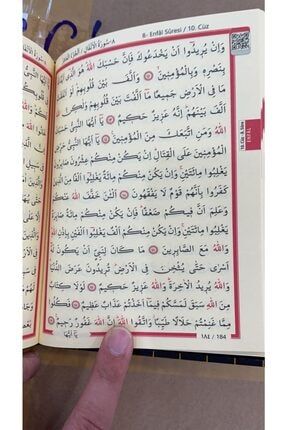 ٨-سُورَةُ الْاَنْفَالِ
8- Enfâl Sûresi / 10. Cüz
وَاِنْ يُرٖيدُٓوا اَنْ يَخْدَعُوكَ فَاِنَّ حَسْبَكَ اللّٰهُ هُوَ الَّذٖٓي اَيَّدَكَ
بِنَصْرِهٖ وَبِالْمُؤْمِنٖينَ ۝ وَاَلَّفَ بَيْنَ قُلُوبِهِمْ لَوْ اَنْفَقْتَ
مَا فِي الْاَرْضِ جَمٖيعًا مَٓا اَلَّفْتَ بَيْنَ قُلُوبِهِمْ وَلٰكِنَّ اللّٰهَ
اَلَّفَ بَيْنَهُمْ اِنَّهُ عَزٖيزٌ حَكٖيمٌ ۝ يَٓا اَيُّهَا النَّبِيُّ حَسْبُكَ
اللّٰهُ وَمَنِ اتَّبَعَكَ مِنَ الْمُؤْمِنٖينَ ۝ يَٓا اَيُّهَا النَّبِيُّ حَرِّضِ
الْمُؤْمِنٖينَ عَلَى الْقِتَالِ اِنْ يَكُنْ مِنْكُمْ عِشْرُونَ صَابِرُونَ
يَغْلِبُوا مِائَتَيْنِ وَاِنْ يَكُنْ مِنْكُمْ مِائَةٌ يَغْلِبُٓوا اَلْفًا مِنَ الَّذٖينَ
كَفَرُوا بِاَنَّهُمْ قَوْمٌ لَا يَفْقَهُونَ ۝ اَلْـٰٔنَ خَفَّفَ اللّٰهُ عَنْكُمْ
وَعَلِمَ اَنَّ فٖيكُمْ ضَعْفًا فَاِنْ يَكُنْ مِنْكُمْ مِائَةٌ صَابِرَةٌ
يَغْلِبُوا مِائَتَيْنِ وَاِنْ يَكُنْ مِنْكُمْ اَلْفٌ يَغْلِبُٓوا اَلْفَيْنِ بِاِذْنِ اللّٰهِ
وَاللّٰهُ مَعَ الصَّابِرٖينَ ۝ مَا كَانَ لِنَبِيٍّ اَنْ يَكُونَ لَهُٓ
اَسْرٰى حَتّٰى يُثْخِنَ فِي الْاَرْضِ تُرٖيدُونَ عَرَضَ الدُّنْيَا
وَاللّٰهُ يُرٖيدُ الْاٰخِرَةَ وَاللّٰهُ عَزٖيزٌ حَكٖيمٌ ۝ لَوْلَا كِتَابٌ
مِنَ اللّٰهِ سَبَقَ لَمَسَّكُمْ فٖيمَٓا اَخَذْتُمْ عَذَابٌ عَظٖيمٌ ۝ فَكُلُوا
مِمَّا غَنِمْتُمْ حَلَالًا طَيِّبًا وَاتَّقُوا اللّٰهَ اِنَّ اللّٰهَ غَفُورٌ رَحٖيمٌ ۝
يَٓا اَيُّهَا
١٨٤ / 184
ENFAL